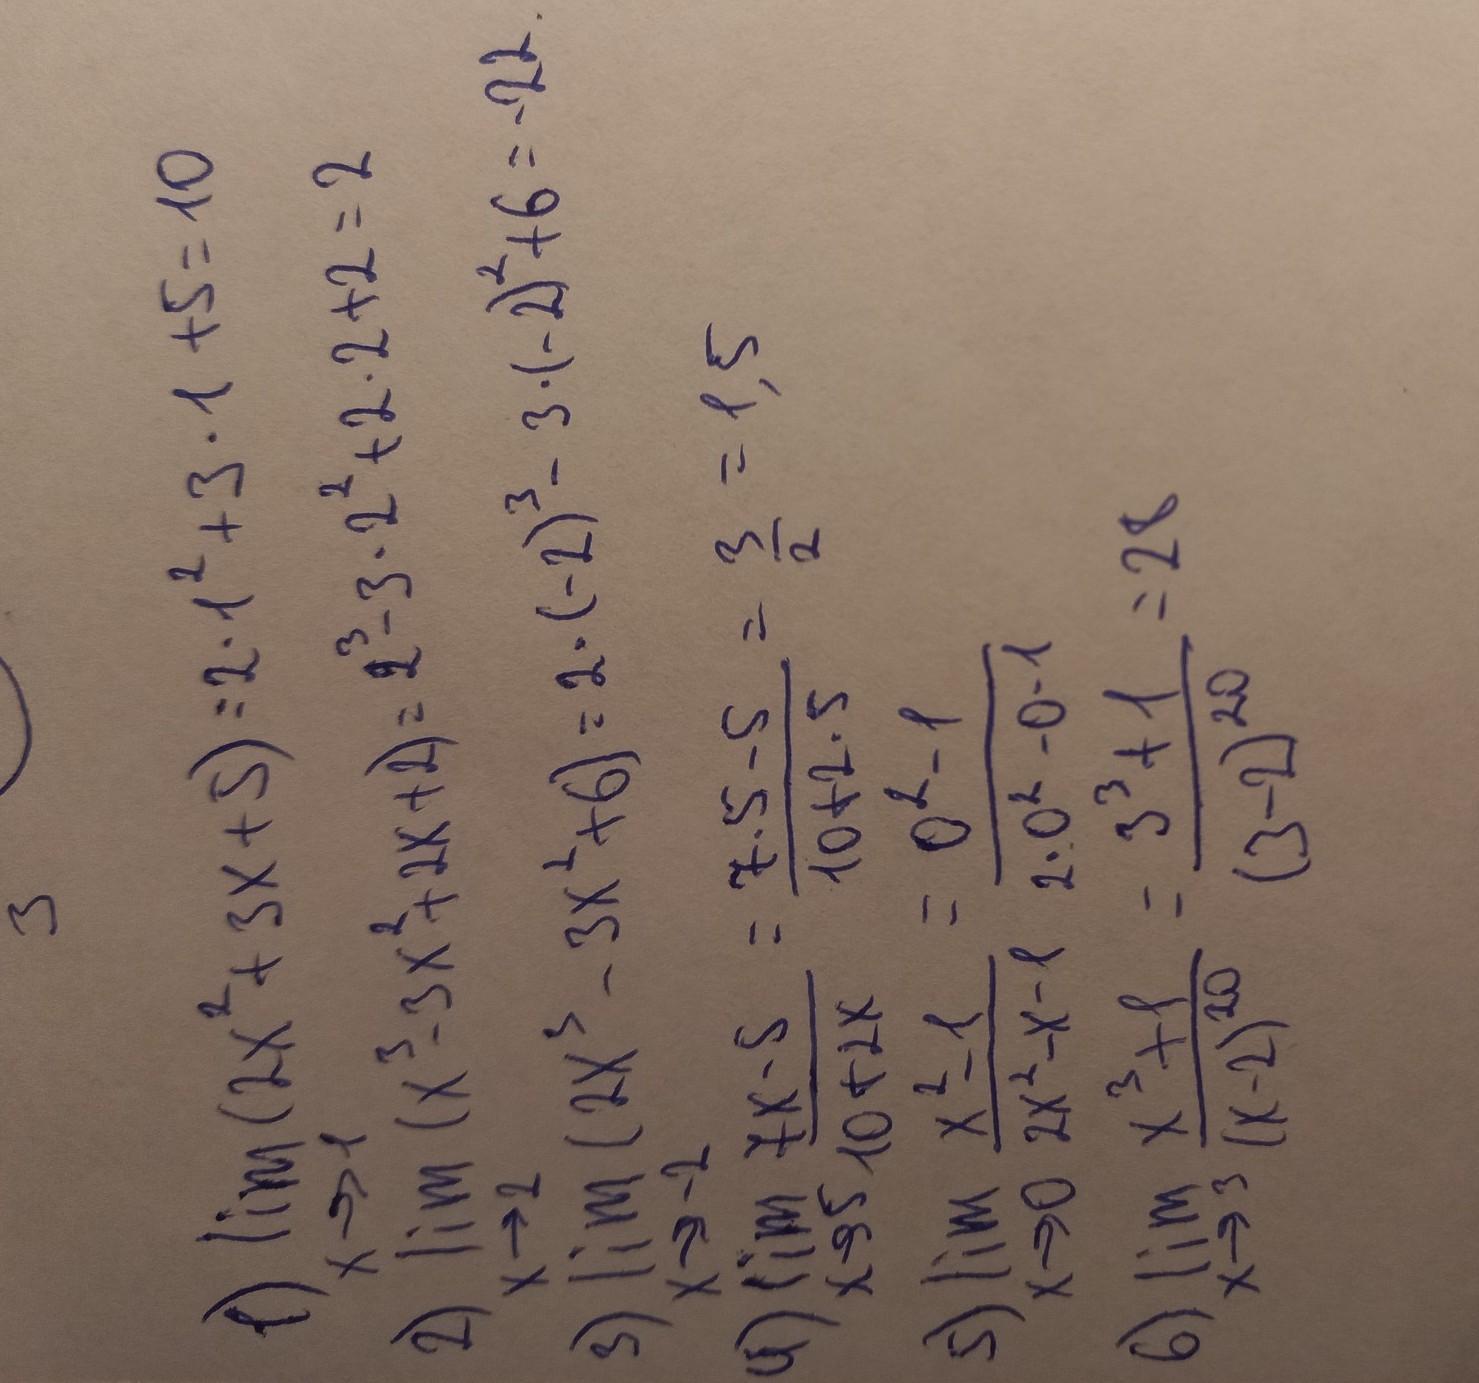 3
1) lim (2x²+3x+5)=2·1²+3·1+5=10
x→1
2) lim (x³-3x²+2x+2)=2³-3·2²+2·2+2=2
x→2
3) lim (2x³-3x²+6)=2·(-2)³-3·(-2)²+6=-22
x→-2
4) lim 7x-5/10+2x = 7·5-5/10+2·5 = 3/2 = 1,5
x→5
5) lim x²-1/2x²-x-1 = 0²-1/2·0²-0-1
x→0
6) lim x³+1/(x-2)²⁰ = 3³+1/(3-2)²⁰ = 28
x→3